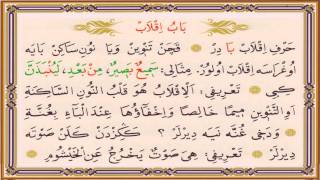 بَابُ اِقْلَابْ
حَرْفِ اِقْلَابْ بَا دِرْ ۞ قَچَنْ تَنْوِينْ وَيَا نُونِ سَاكِنْ بَايَه
اُوغْرَاسَه اِقْلَابْ اُولُورْ. مِثَالِى: سَمِيعٌ بَصِيرٌ، مِنْ بَعْدِ، لَيُنْبَذَنَّ
كِبِى ۞ تَعْرِيفِى: اَلْاِقْلَابُ هُوَ قَلْبُ النُّونِ السَّاكِنَةِ
اَوِ التَّنْوِينِ مِيمًا خَالِصًا وَاِخْفَاؤُهَا عِنْدَ الْبَاءِ بِغُنَّةٍ
۞ وَدَخِى غُنَّه نَيَه دِيرْلَرْ؟ ۞ گَڭِزْدَنْ گَلَنْ صَوْتَه
دِيرْلَرْ ۞ تَعْرِيفِى: هِىَ صَوْتٌ يَخْرُجُ عَنِ الْخَيْشُومِ